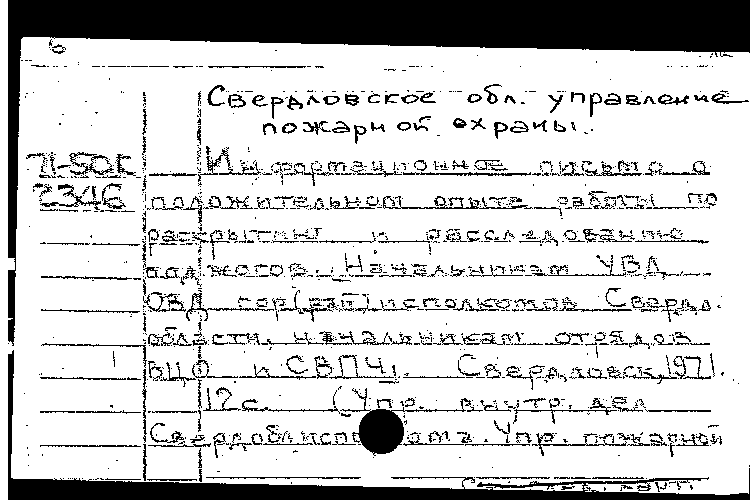 6
Свердловское обл. управление
пожарной охраны.
71-50к Информационное письмо о
2346 положительном опыте работы по
раскрытию и расследованию
поджогов. Начальникам УВД
ОВД гор(рай)исполкомов Свердл.
области, начальникам отрядов
ВЦО и СВПЧ. Свердловск, 1971.
12 с. (Упр. внутр. дел
Свердоблисполкома. Упр. пожарной